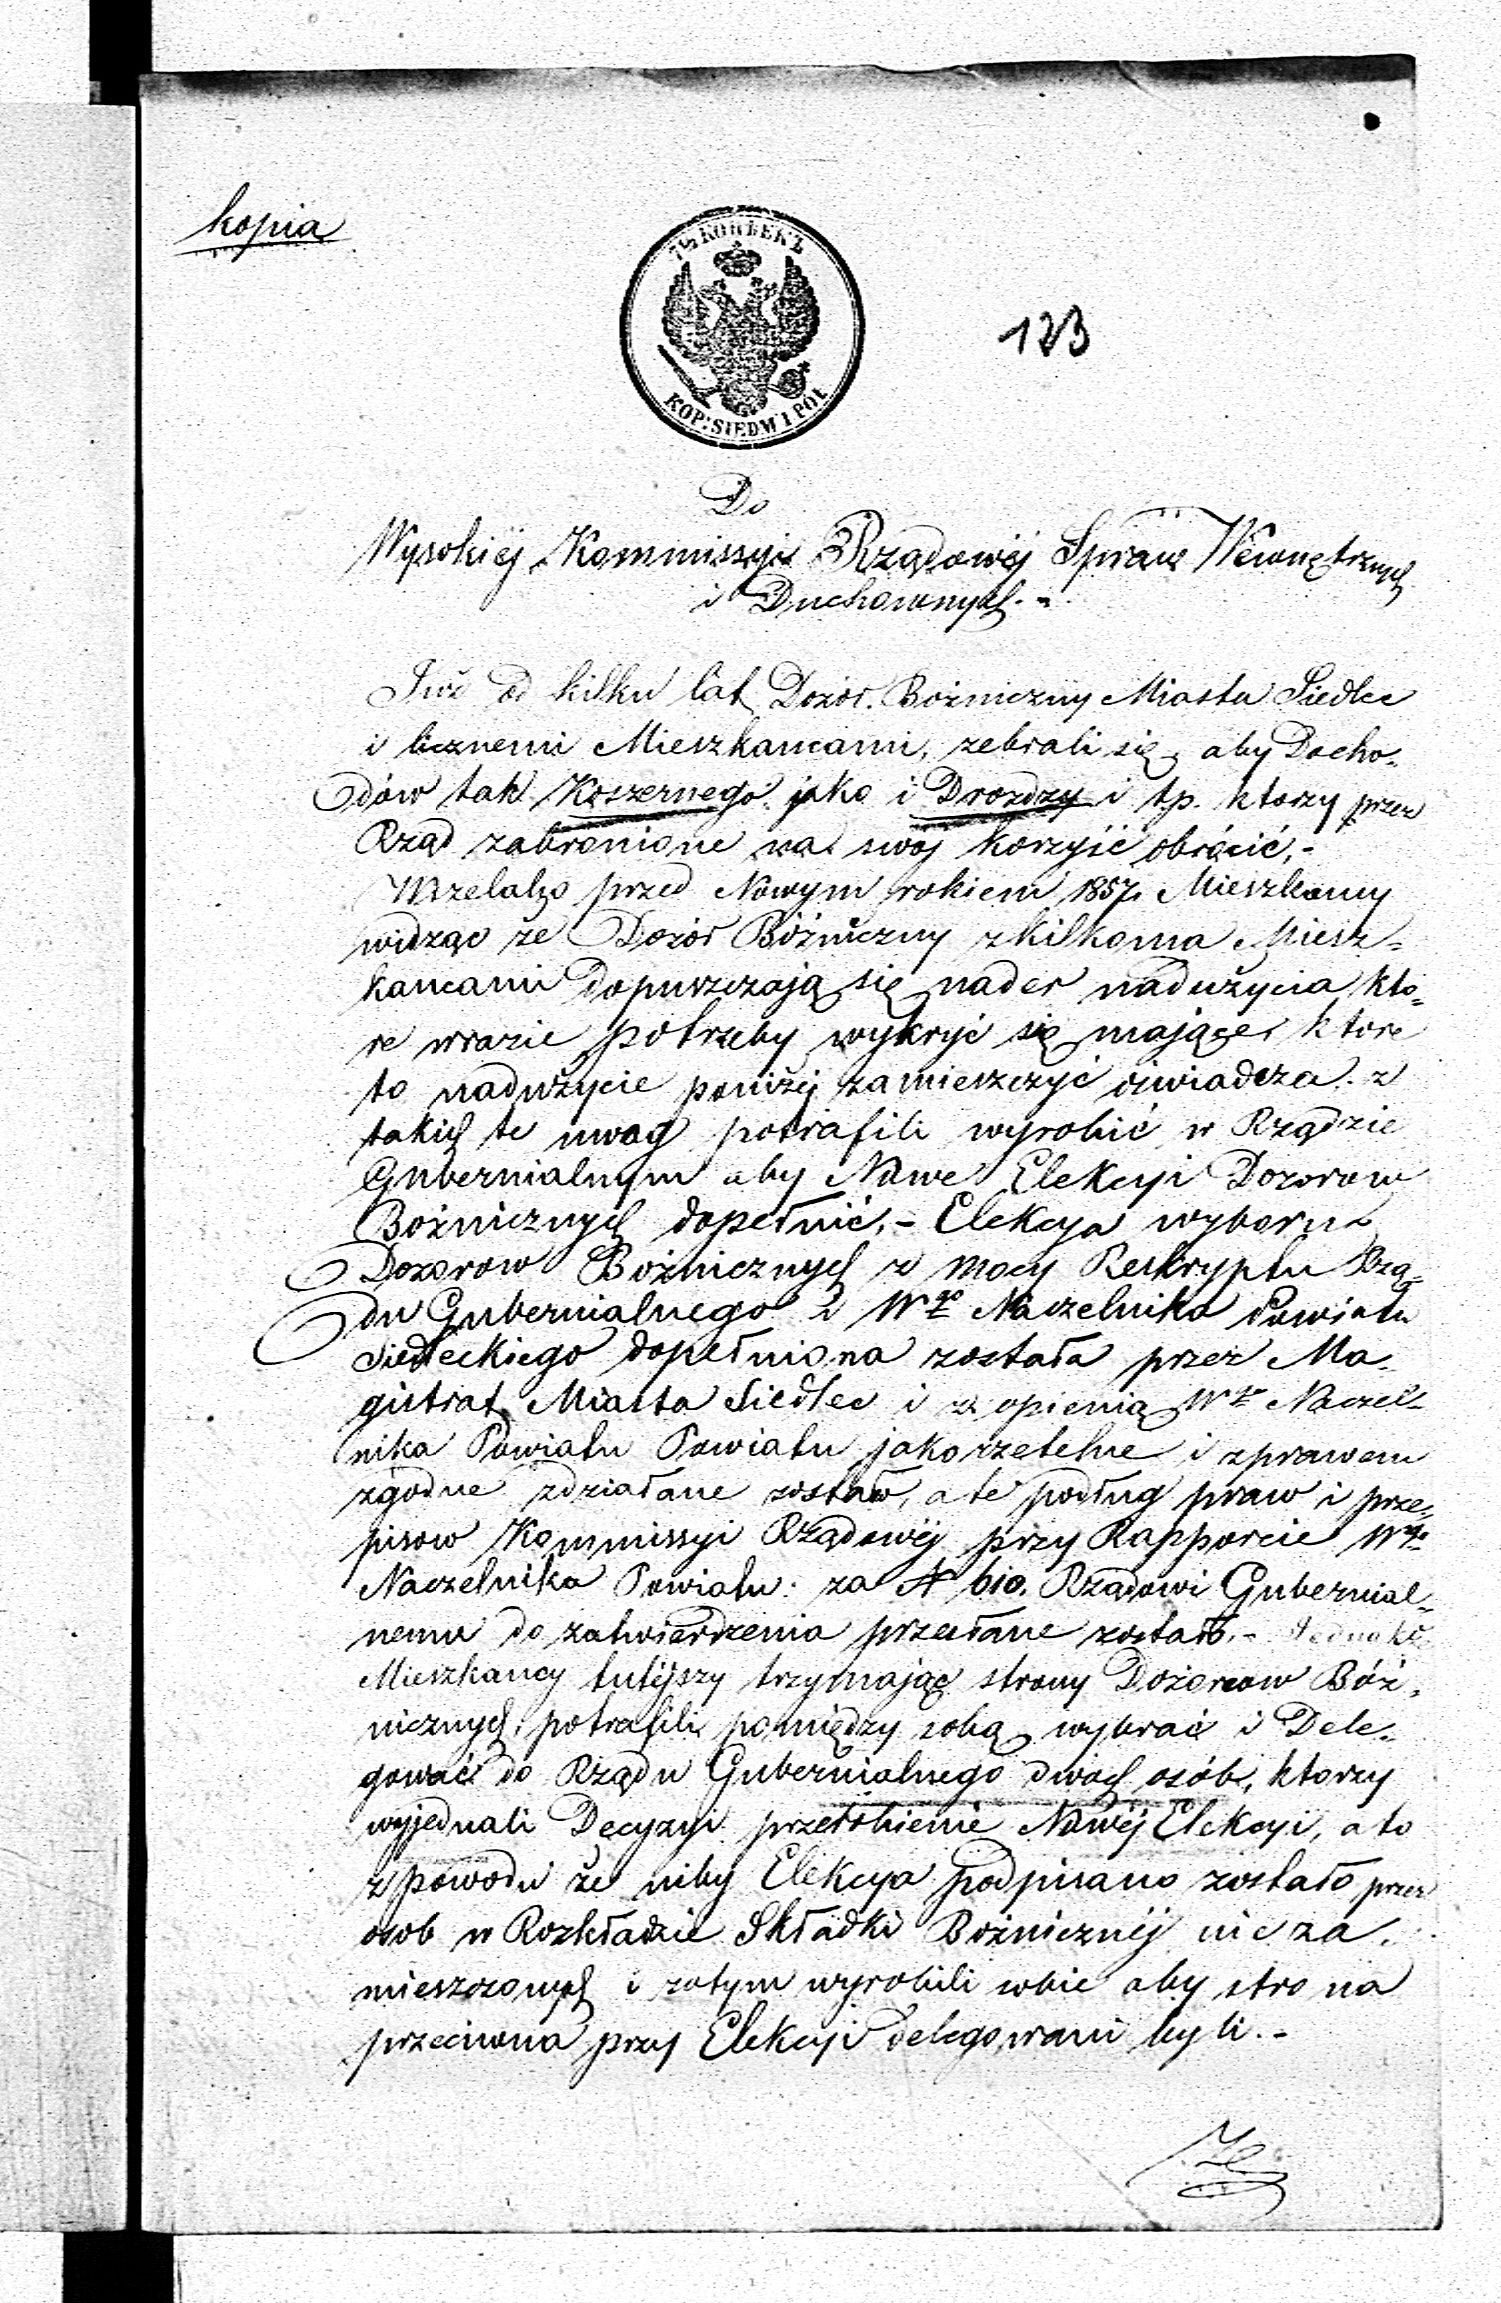 kopia
7½ КОПѢЕКЪ
KOP: SIEDM I PÓŁ
123
Do
Wysokiéj Kommissyi Rządowéj Spraw Wewnętrznych
i Duchownych.-
Już od kilku lat Dozór Bożniczny Miasta Siedlec
i licznemi Mieszkancami, zebrali się, aby Docho-
dów tak Koszernego jako i Drozdzy i tp. ktorzy przez
Rząd zabronione na swój korzyść obrócić,-
Wszelako przed Nowym rokiem 1857, Mieszkancy
widząc ze Dozór Bóżniczny z kilkoma Miesz-
kancami dopuszczają się nader nadużycia kto-
re wrazie potrzeby wykryć się mające, ktore
to nadużycie poniżéj zamieszczyć oświadcza. z
takich te uwag potrafili wyrobić w Rządzie
Gubernialnym aby Nowe Elekcyi Dozorow
Bożnicznych dopełnić,- Elekcya wyboru
Dozorow Bożnicznych z mocy Reskryptu Rzą-
du Gubernialnego i Wgo Naczelnika Powiatu
Siedleckiego dopełniona została przez Ma-
gistrat Miasta Siedlec i z opienią Wgo Naczel-
nika Powiatu Powiatu jako rzetelne i z prawem
zgodne zdziałane zostało, a te podług praw i prze-
pisow Kommissyi Rządowéj przy Rapporcie Wgo
Naczelnika Powiatu za N 610. Rządowi Gubernial-
nemu do zatwierdzenia przesłane zostało.- Jednakże
Mieszkancy tutéjszy trzymając strony Dozorcow Bóż-
nicznych, potrafili pomiędzy sobą wybrać i Dele-
gować do Rządu Gubernialnego dwóch osób, ktorzy
wyjednali Decyzyi przerobienie Nowéj Elekcyi, a to
z powodu że niby Elekcya podpisano zostało przez
osob w Rozkładzie Składki Bożnicznéj nie za-
mieszczonych i zatym wyrobili sobie aby strona
przeciwna przy Elekcyi delegowani byli.-